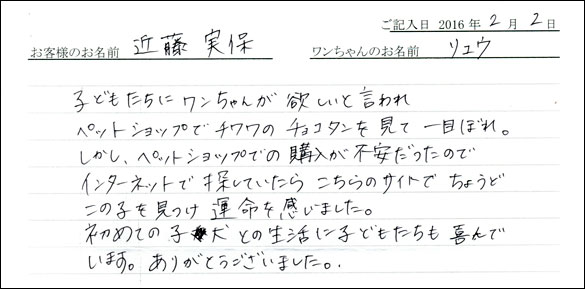 ご記入日 2016年2月2日
お客様のお名前 近藤 実保 ワンちゃんのお名前 リュウ
子どもたちに ワンちゃんが 欲しいと言われ
ペットショップで チワワの チョコタンを見て 一目ぼれ。
しかし、ペットショップでの 購入が 不安だったので
インターネットで 探していたら こちらのサイトで ちょうど
この子を見つけ 運命を感じました。
初めての 子犬 との生活に子どもたちも 喜んで
います。ありがとうございました。